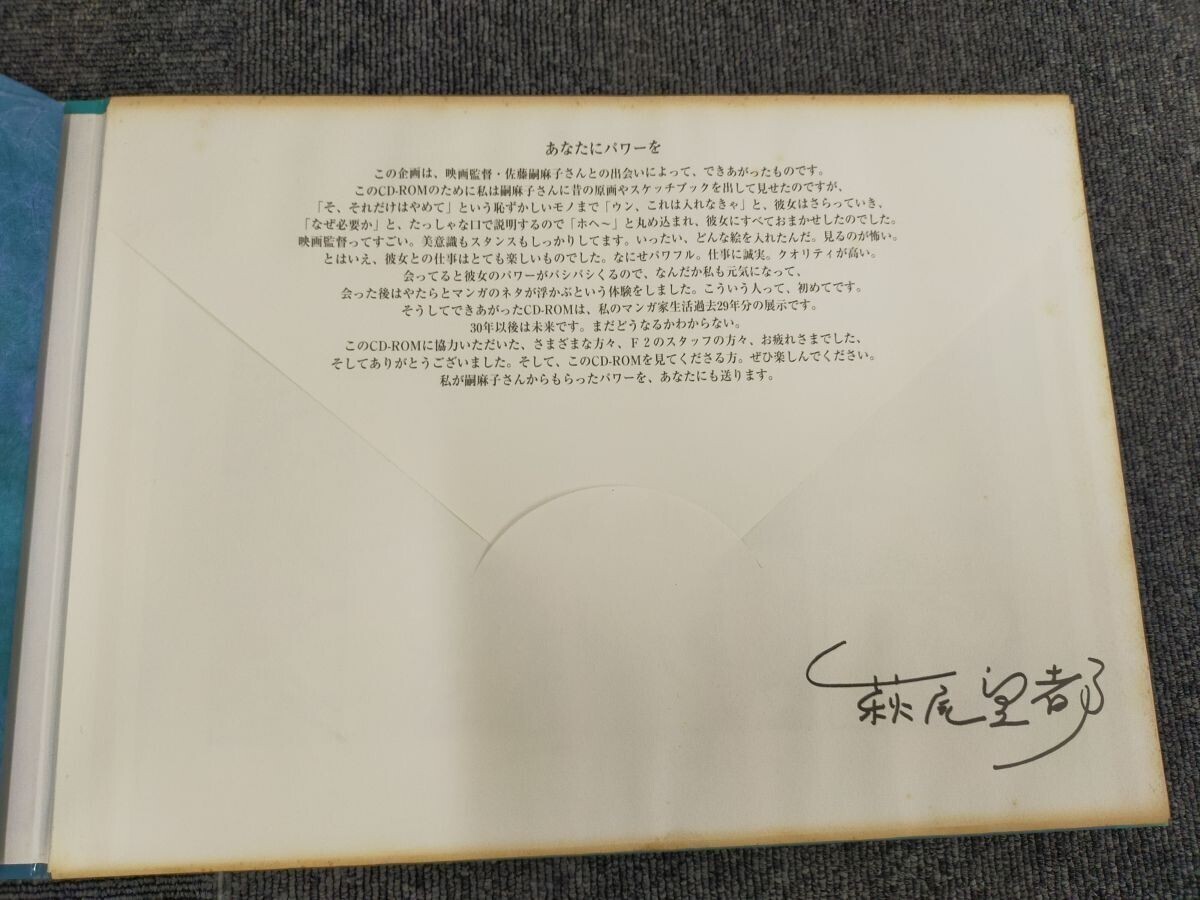 あなたにパワーを
この企画は、映画監督・佐藤嗣麻子さんとの出会いによって、できあがったものです。
このCD-ROMのために私は嗣麻子さんに昔の原画やスケッチブックを出して見せたのですが、
「そ、それだけはやめて」という恥ずかしいモノまで「ウン、これは入れなきゃ」と、彼女はさらっていき、
「なぜ必要か」と、たっしゃな口で説明するので「ホヘ〜」と丸め込まれ、彼女にすべておまかせしたのでした。
映画監督ってすごい。美意識もスタンスもしっかりしてます。いったい、どんな絵を入れたんだ。見るのが怖い。
とはいえ、彼女との仕事はとても楽しいものでした。なにせパワフル。仕事に誠実。クオリティが高い。
会ってると彼女のパワーがバシバシくるので、なんだか私も元気になって、
会った後はやたらとマンガのネタが浮かぶという体験をしました。こういう人って、初めてです。
そうしてできあがったCD-ROMは、私のマンガ家生活過去29年分の展示です。
30年以後は未来です。まだどうなるかわからない。
このCD-ROMに協力いただいた、さまざまな方々、F2のスタッフの方々、お疲れさまでした、
そしてありがとうございました。そして、このCD-ROMを見てくださる方。ぜひ楽しんでください。
私が嗣麻子さんからもらったパワーを、あなたにも送ります。
萩尾望都